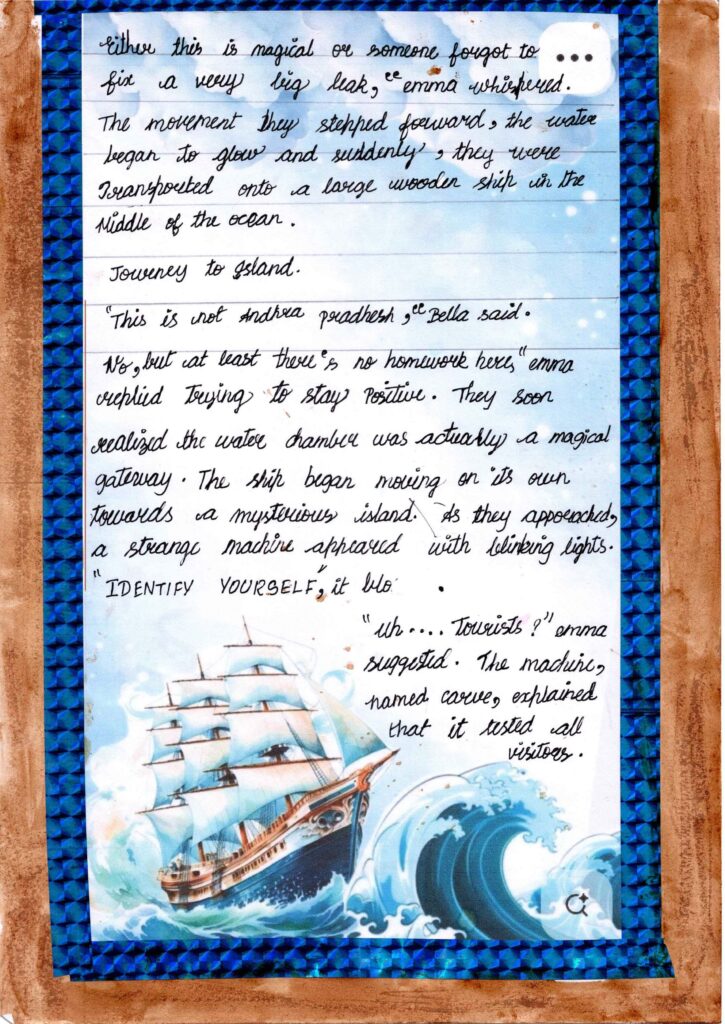 Either this is magical or someone forgot to
fix a very big leak,“ emma whispered.
The movement they stepped forward, the water
began to glow and suddenly, they were
Transported onto a large wooden ship in the
Middle of the ocean.
Journey to Island.
"This is not Andhra pradhesh,“ Bella said.
No, but at least there's no homework here," emma
replied Trying to stay Positive. They soon
realized the water chamber was actually a magical
gateway. The ship began moving on its own
towards a mysterious island. As they apporached,
a strange machine appeared with blinking lights.
"IDENTIFY YOURSELF", it
"Uh.... Tourists?" emma
suggested. The machine,
named carve, explained
that it tested all
visitors.